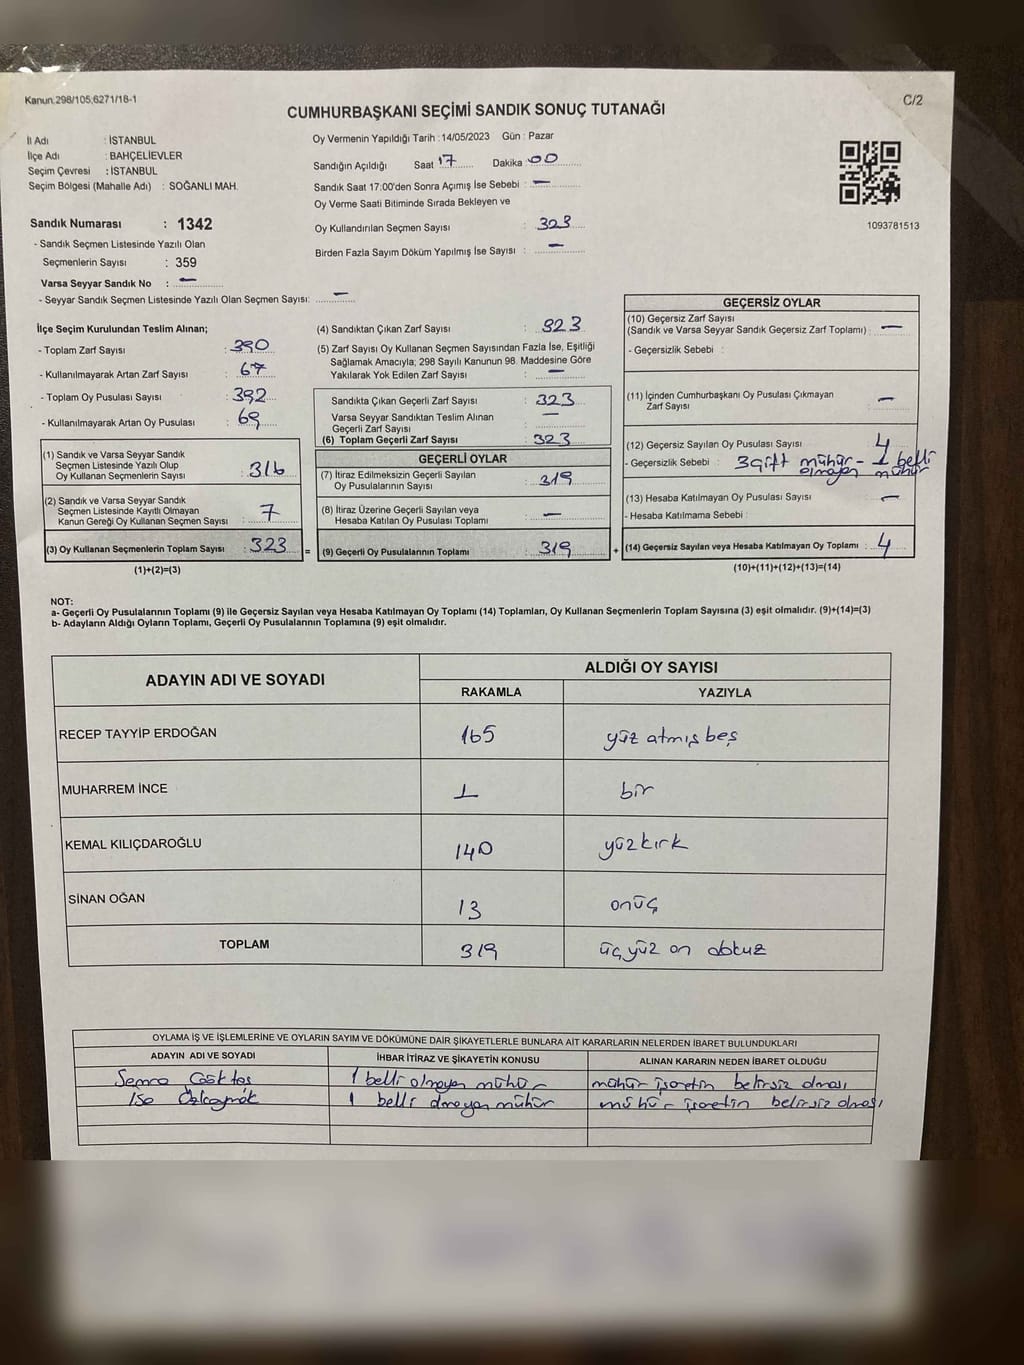 Kanun.298/105,6271/18-1
C/2
CUMHURBAŞKANI SEÇİMİ SANDIK SONUÇ TUTANAĞI
İl Adı : İSTANBUL
İlçe Adı : BAHÇELİEVLER
Seçim Çevresi : İSTANBUL
Seçim Bölgesi (Mahalle Adı) : SOĞANLI MAH.
Sandık Numarası : 1342
- Sandık Seçmen Listesinde Yazılı Olan
Seçmenlerin Sayısı : 359
Varsa Seyyar Sandık No : —
- Seyyar Sandık Seçmen Listesinde Yazılı Olan Seçmen Sayısı: —
Oy Vermenin Yapıldığı Tarih : 14/05/2023 Gün : Pazar
Sandığın Açıldığı Saat : 17 Dakika : 00
Sandık Saat 17:00'den Sonra Açımış İse Sebebi : —
Oy Verme Saati Bitiminde Sırada Bekleyen ve
Oy Kullandırılan Seçmen Sayısı : 323
Birden Fazla Sayım Döküm Yapılmış İse Sayısı : —
1093781513
İlçe Seçim Kurulundan Teslim Alınan;
- Toplam Zarf Sayısı : 390
- Kullanılmayarak Artan Zarf Sayısı : 67
- Toplam Oy Pusulası Sayısı : 392
- Kullanılmayarak Artan Oy Pusulası : 69
(1) Sandık ve Varsa Seyyar Sandık
Seçmen Listesinde Yazılı Olup
Oy Kullanan Seçmenlerin Sayısı : 316
(2) Sandık ve Varsa Seyyar Sandık
Seçmen Listesinde Kayıtlı Olmayan
Kanun Gereği Oy Kullanan Seçmen Sayısı : 7
(3) Oy Kullanan Seçmenlerin Toplam Sayısı : 323 =
(1)+(2)=(3)
(4) Sandıktan Çıkan Zarf Sayısı : 323
(5) Zarf Sayısı Oy Kullanan Seçmen Sayısından Fazla İse, Eşitliği
Sağlamak Amacıyla; 298 Sayılı Kanunun 98. Maddesine Göre
Yakılarak Yok Edilen Zarf Sayısı : —
Sandıkta Çıkan Geçerli Zarf Sayısı : 323
Varsa Seyyar Sandıktan Teslim Alınan
Geçerli Zarf Sayısı : —
(6) Toplam Geçerli Zarf Sayısı : 323
GEÇERLİ OYLAR
(7) İtiraz Edilmeksizin Geçerli Sayılan
Oy Pusulalarının Sayısı : 319
(8) İtiraz Üzerine Geçerli Sayılan veya
Hesaba Katılan Oy Pusulası Toplamı : —
(9) Geçerli Oy Pusulalarının Toplamı : 319 +
GEÇERSİZ OYLAR
(10) Geçersiz Zarf Sayısı
(Sandık ve Varsa Seyyar Sandık Geçersiz Zarf Toplamı) : —
- Geçersizlik Sebebi :
(11) İçinden Cumhurbaşkanı Oy Pusulası Çıkmayan
Zarf Sayısı : —
(12) Geçersiz Sayılan Oy Pusulası Sayısı : 4
- Geçersizlik Sebebi : 3 çift mühür - 1 belli
olmayan mühür
(13) Hesaba Katılmayan Oy Pusulası Sayısı : —
- Hesaba Katılmama Sebebi :
(14) Geçersiz Sayılan veya Hesaba Katılmayan Oy Toplamı : 4
(10)+(11)+(12)+(13)=(14)
NOT:
a- Geçerli Oy Pusulalarının Toplamı (9) ile Geçersiz Sayılan veya Hesaba Katılmayan Oy Toplamı (14) Toplamları, Oy Kullanan Seçmenlerin Toplam Sayısına (3) eşit olmalıdır. (9)+(14)=(3)
b- Adayların Aldığı Oyların Toplamı, Geçerli Oy Pusulalarının Toplamına (9) eşit olmalıdır.
ADAYIN ADI VE SOYADI
ALDIĞI OY SAYISI
RAKAMLA YAZIYLA
RECEP TAYYİP ERDOĞAN 165 yüz atmış beş
MUHARREM İNCE 1 bir
KEMAL KILIÇDAROĞLU 140 yüzkırk
SİNAN OĞAN 13 onüç
TOPLAM 319 üçyüz on dokuz
OYLAMA İŞ VE İŞLEMLERİNE VE OYLARIN SAYIM VE DÖKÜMÜNE DAİR ŞİKAYETLERLE BUNLARA AİT KARARLARIN NELERDEN İBARET BULUNDUKLARI
ADAYIN ADI VE SOYADI İHBAR İTİRAZ VE ŞİKAYETİN KONUSU ALINAN KARARIN NEDEN İBARET OLDUĞU
Semra 1 belli olmayan mühür mühür işaretin belirsiz olması
İsa 1 belli olmayan mühür mühür işaretin belirsiz olması